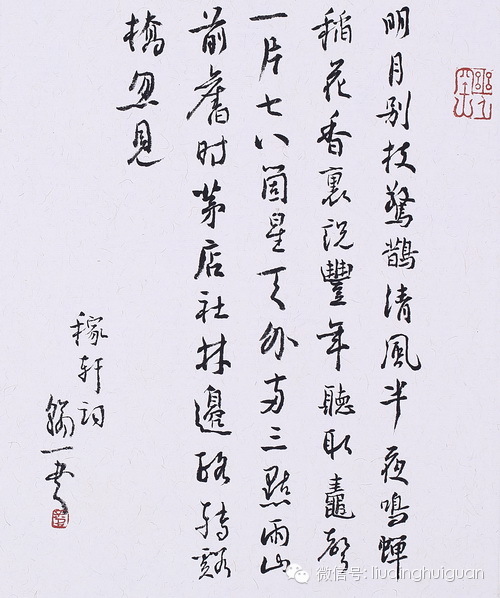 明月别枝驚鵲清風半夜鳴蟬
稻花香裏説豐年聽取鼃聲
一片七八箇星天外兩三點雨山
前舊时茅店社林邊路轉谿
橋忽見
稼軒詞
一書
微信号: liudinghuiguan